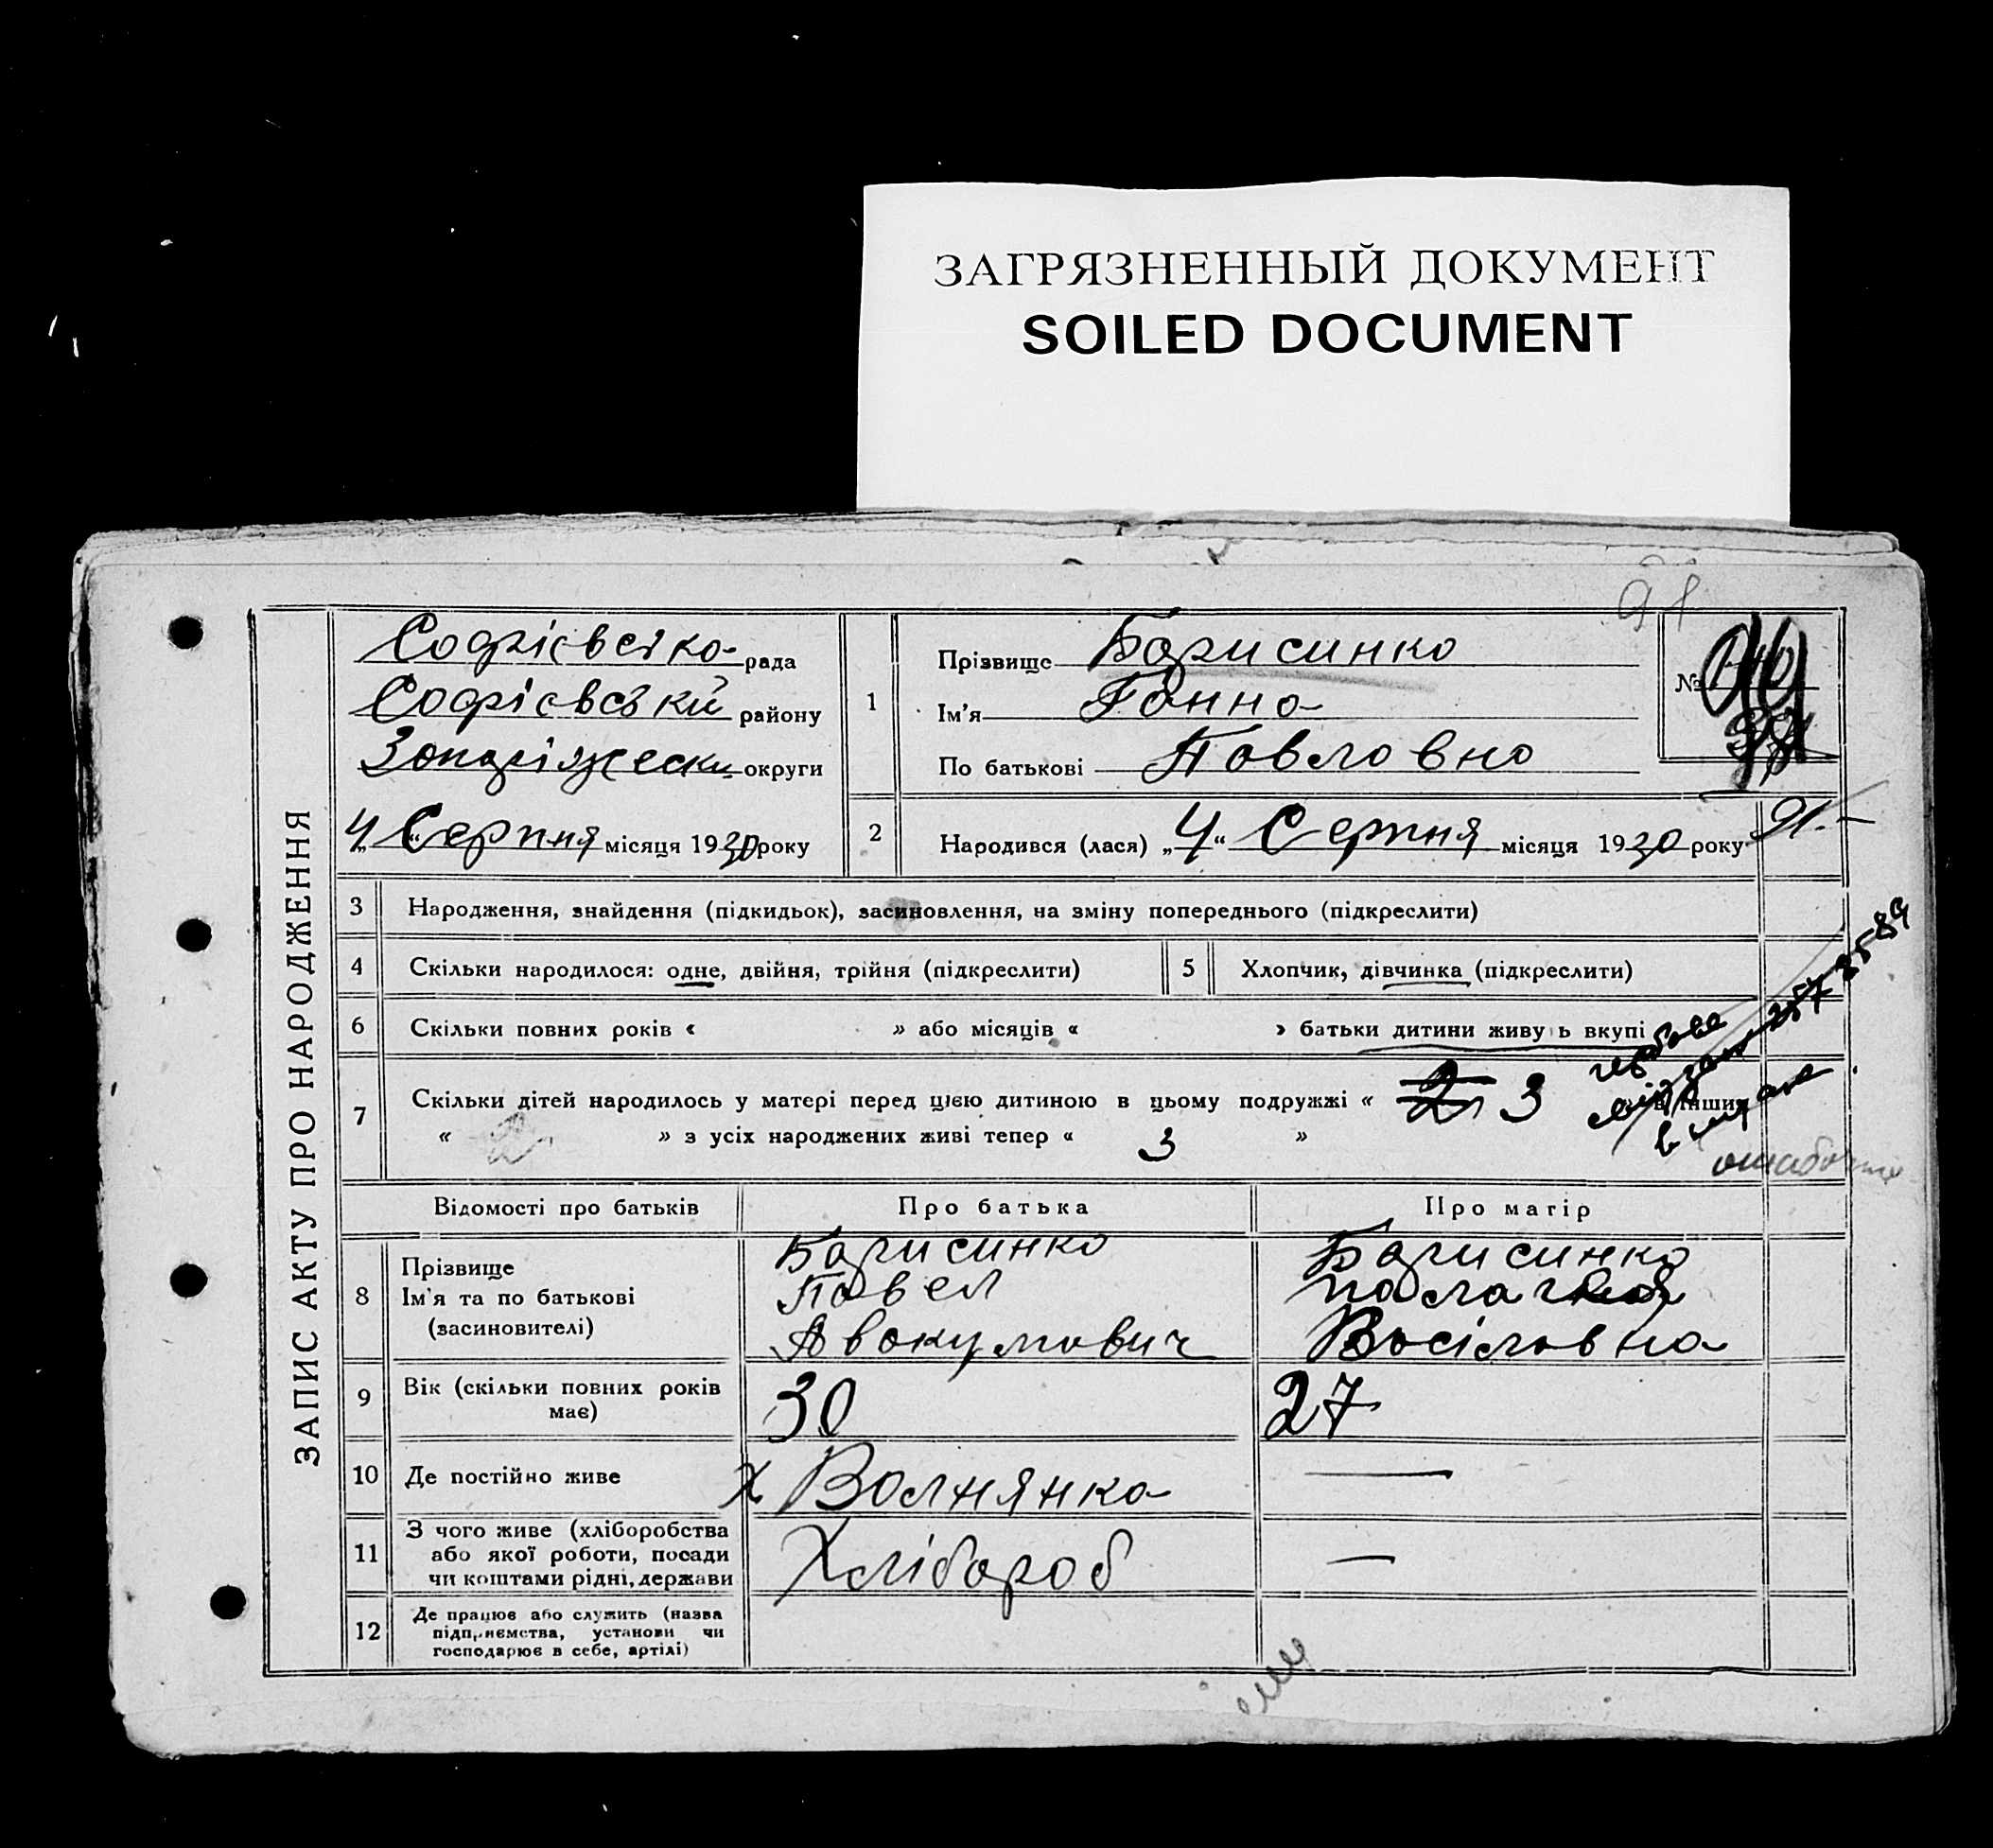 ЗАГРЯЗНЕННЫЙ ДОКУМЕНТ
SOILED DOCUMENT
91
ЗАПИС АКТУ ПРО НАРОДЖЕННЯ
Софієвська рада
Софієвський району
Запоріжески округи
"4" Серпня місяця 1930 року
1
Прізвище Барисинко
Ім'я Ганна
По батькові Павловна
№
2 Народився (лася) „4“ Серпня місяця 1930 року
91.
3 Народження, знайдення (підкидьок), засиновлення, на зміну попереднього (підкреслити)
4 Скільки народилося: одне, двійня, трійня (підкреслити)
5 Хлопчик, дівчинка (підкреслити)
6 Скільки повних років « » або місяців « » батьки дитини живу ь вкупі
7 Скільки дітей народилось у матері перед цією дитиною в цьому подружжі « 2 3 в інших
« 2 » з усіх народжених живі тепер « 3 »
ошибочно
Відомості про батьків Про батька Про матір
8 Прізвище
Ім'я та по батькові
(засиновителі)
Барисинко
Павел
Авакумович
Барисинко
Васіловна
9 Вік (скільки повних років має)
30
27
10 Де постійно живе
х Волнянка
—
11 З чого живе (хліборобства
або якої роботи, посади
чи коштами рідні, держави
Хлібароб
—
12 Де працює або служить (назва
підприємства, установи чи
господарює в себе, артілі)